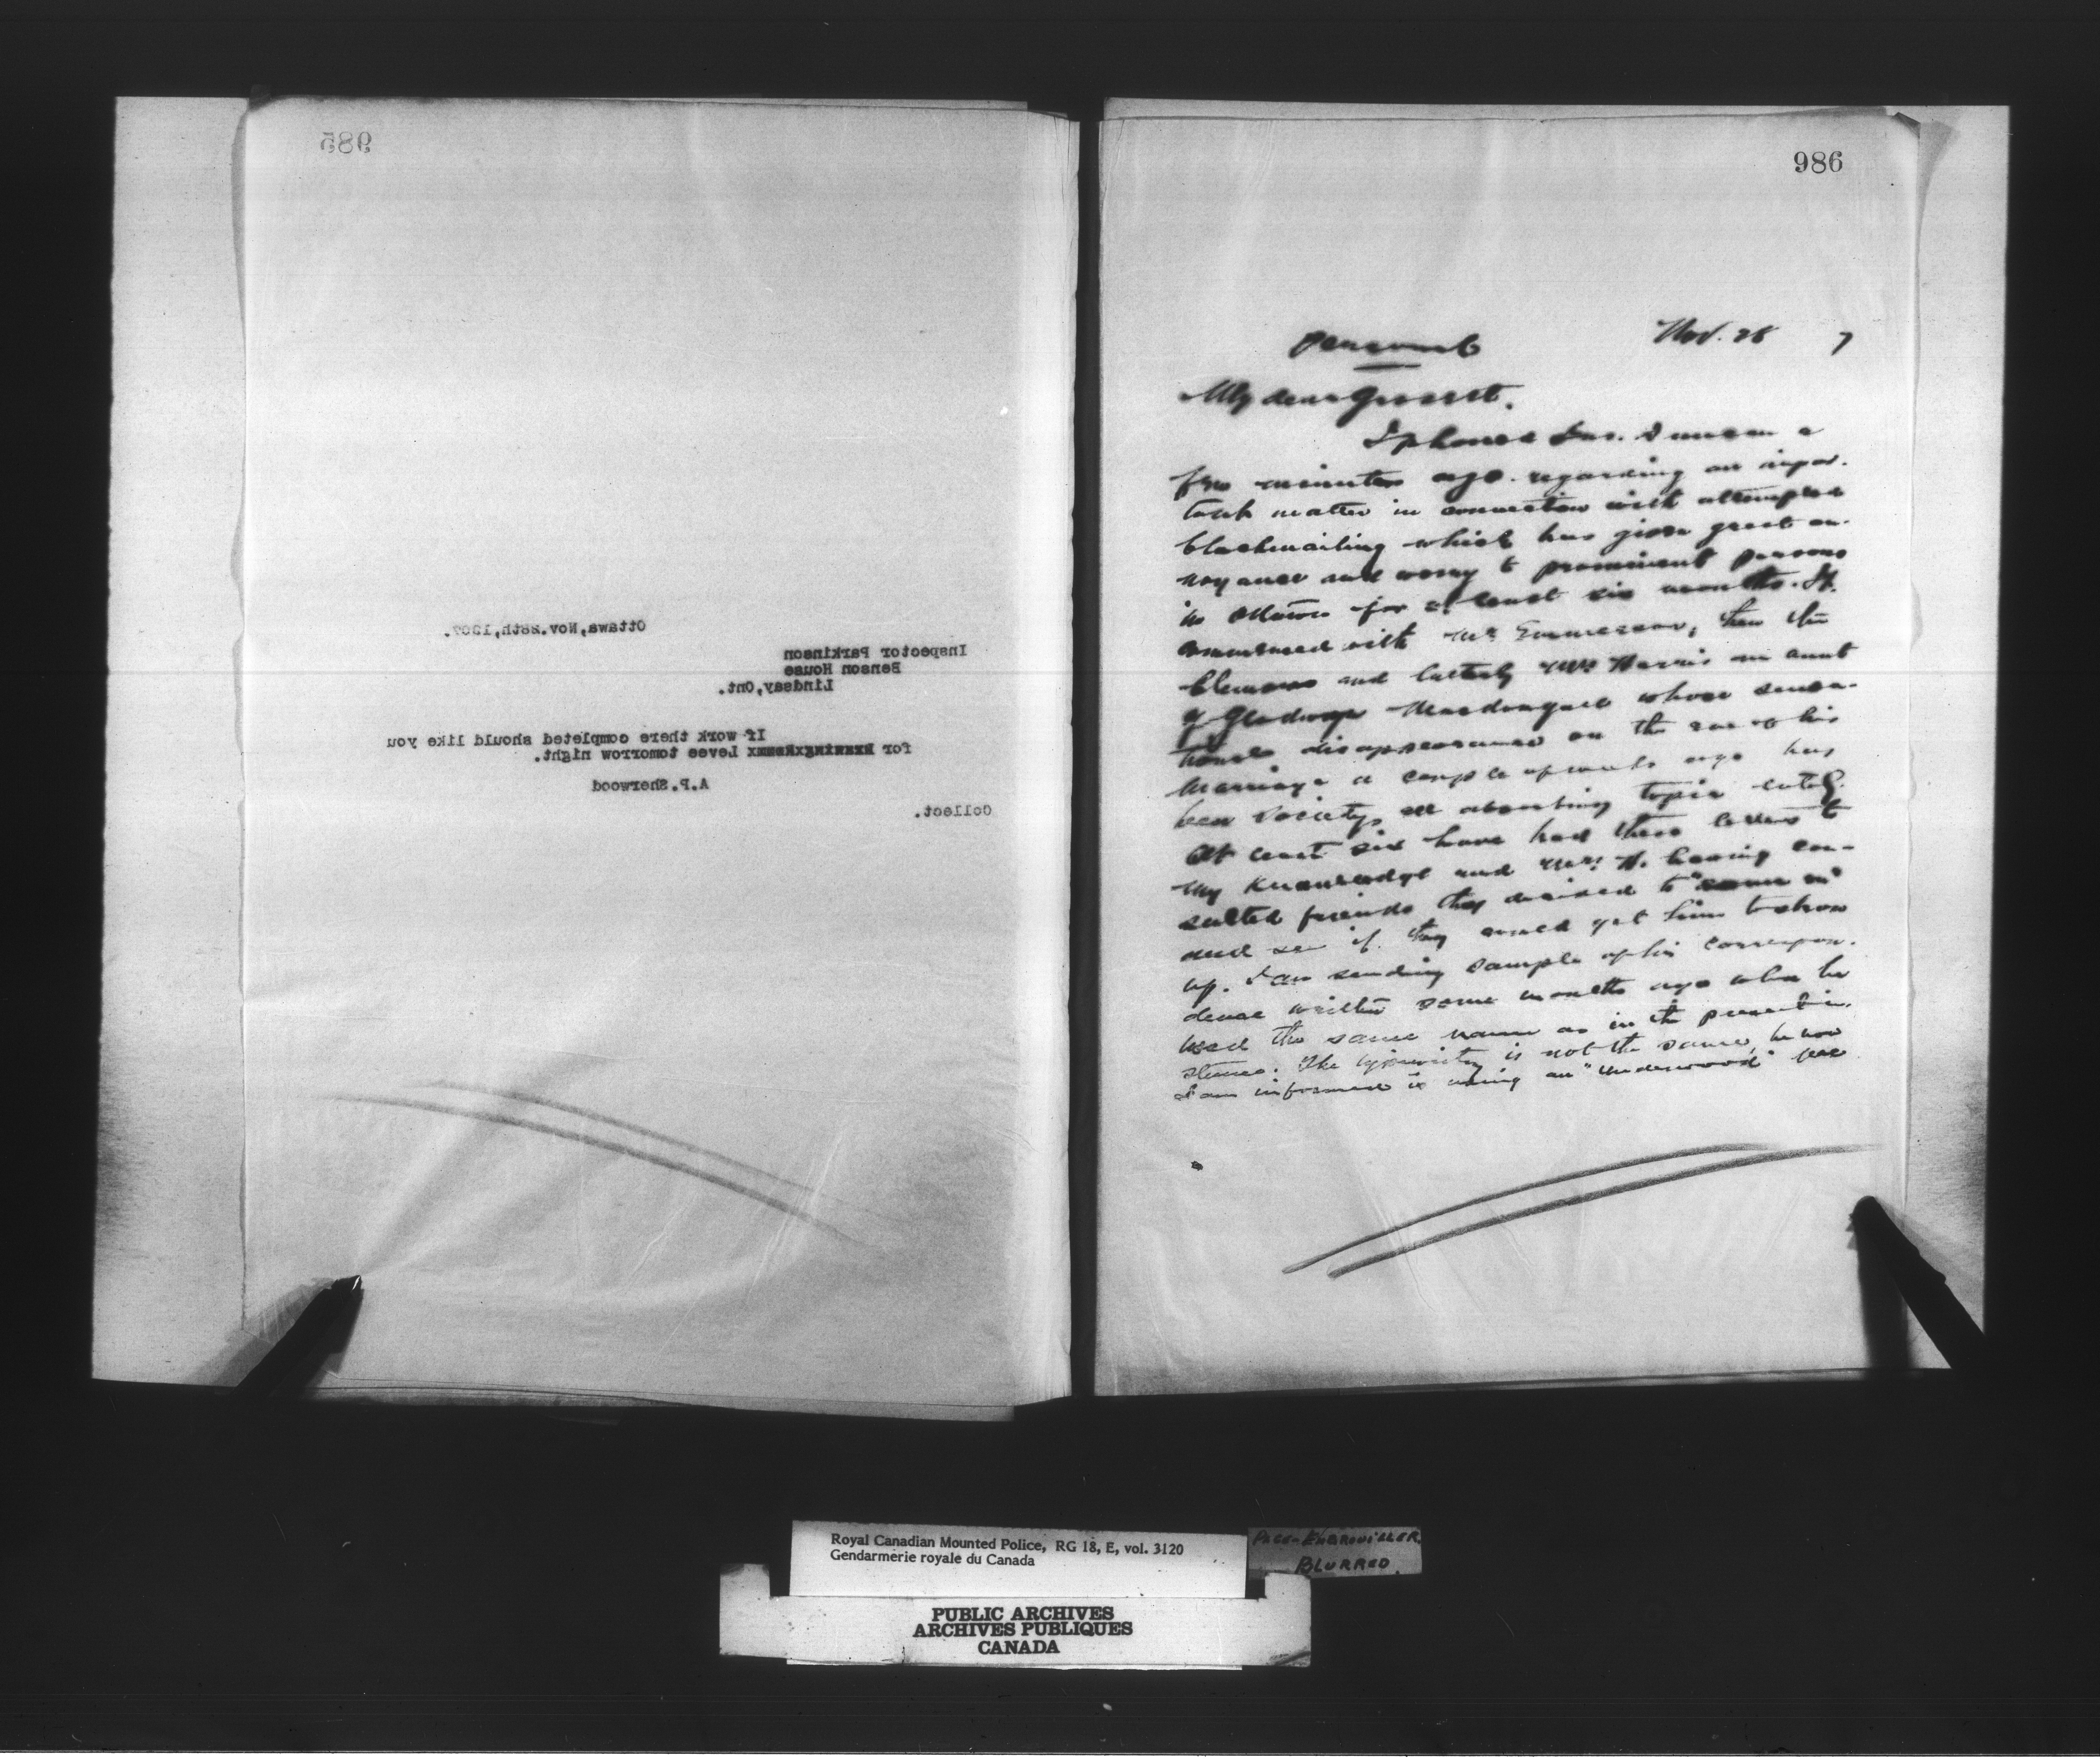 985
Ottawa, Nov. 28th, 1907.
Inspector Parkinson
Benson House
Lindsay, Ont.
If work there completed should like you
for Levee tomorrow night.
A.P. Sherwood
Collect.
986
Personal
Nov. 28 7
My dear
I phoned a
few minutes ago regarding an impor-
tant matter in connection with attempted
blackmailing which has given great an-
noyance and worry to prominent persons
in Ottawa for at least six months. It
commenced with Mr. Emmerson, then
and latterly Mrs Harris an aunt
of whose sensa-
tional disappearance on the eve of his
marriage a couple of weeks ago has
been Society's all absorbing topic lately.
At least six have had these letters to
my knowledge and Mrs. H. having con-
sulted friends they decided to
and see if they could get him to show
up. I am sending sample of his correspon-
dence written some months ago when he
used the same name as in the present in-
stance. The typewriting is not the same, he now
I am informed is using an "Underwood"
Royal Canadian Mounted Police, RG 18, E, vol. 3120
Gendarmerie royale du Canada
BLURRED
PUBLIC ARCHIVES
ARCHIVES PUBLIQUES
CANADA